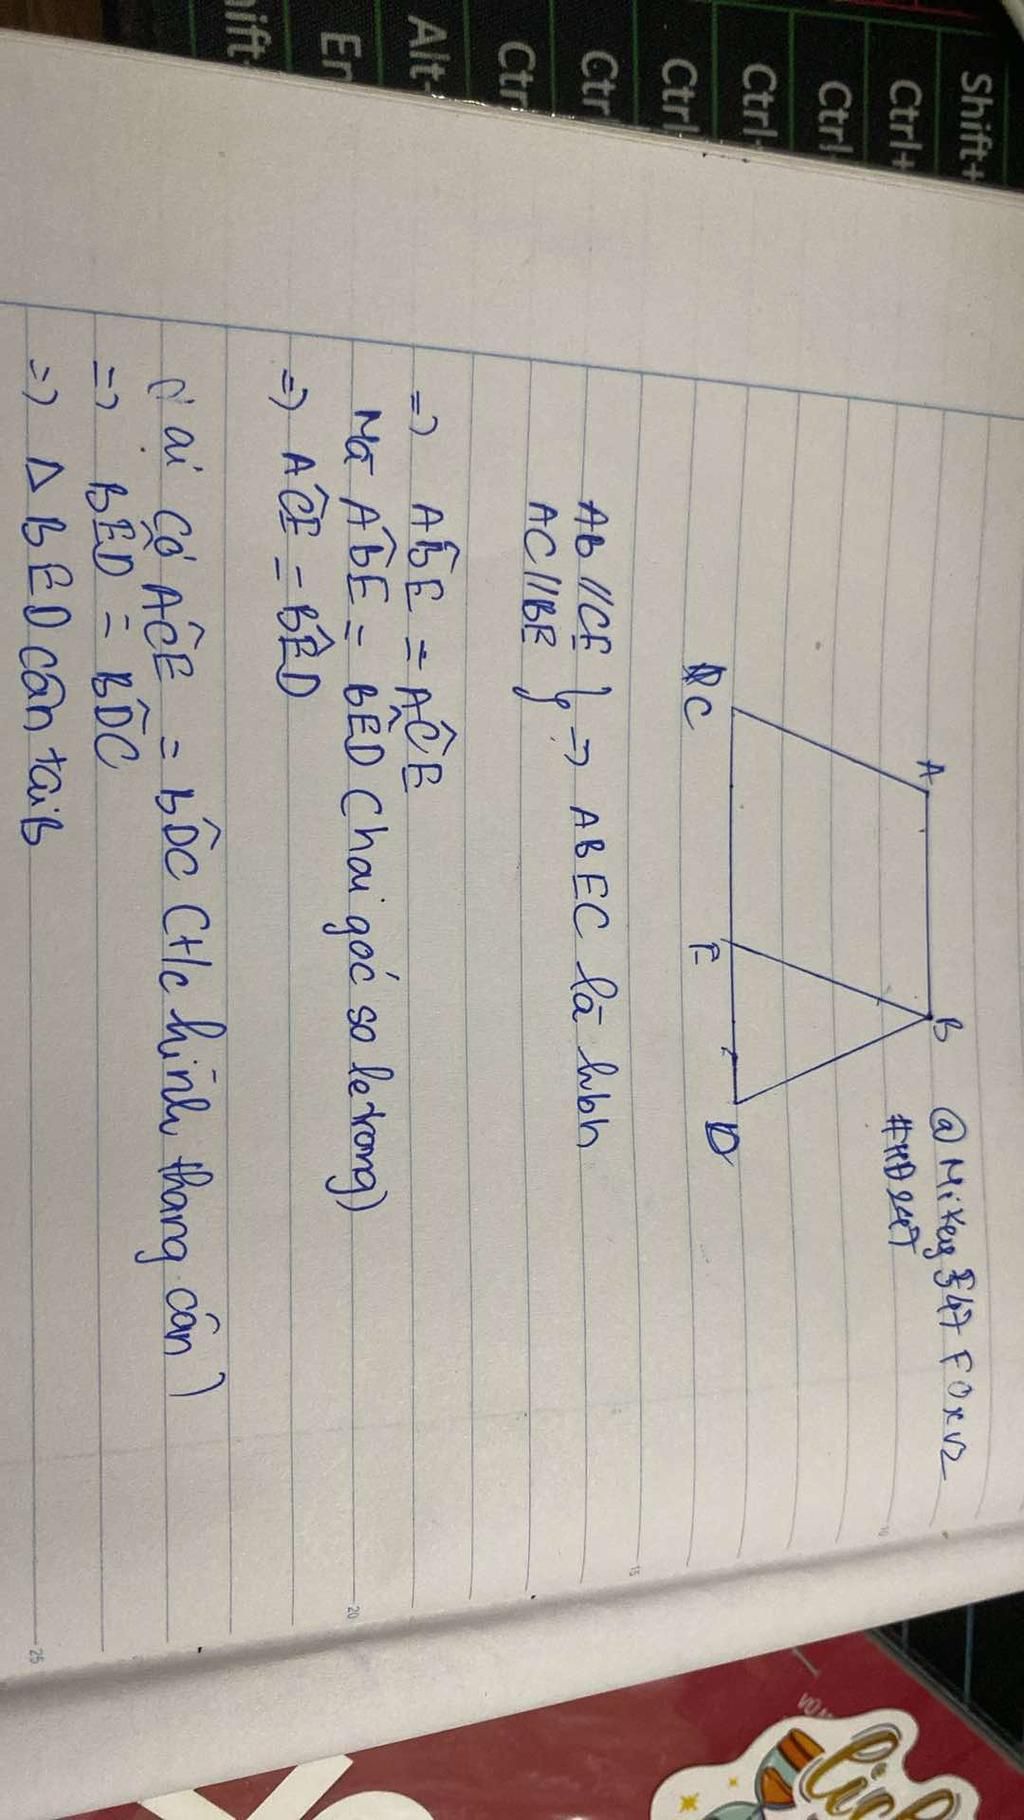 Shift+
Ctrl+
Ctrl
Ctrl+
Ctrl
Ctr
Ctr
Alt
En
hift
@Mikey 347 FOxV2
#HD247
A
B
C
E
D
AB//CE
AC//BE } => ABEC là hbh
=> ABÊ = AĈE
Mà AB̂E = BÊD (hai góc so le trong)
=> AĈE = BÊD
Lại có AĈE = BD̂C (t/c hình thang cân)
=> BÊD = BD̂C
=> Δ BED cân tại B
10
15
20
25